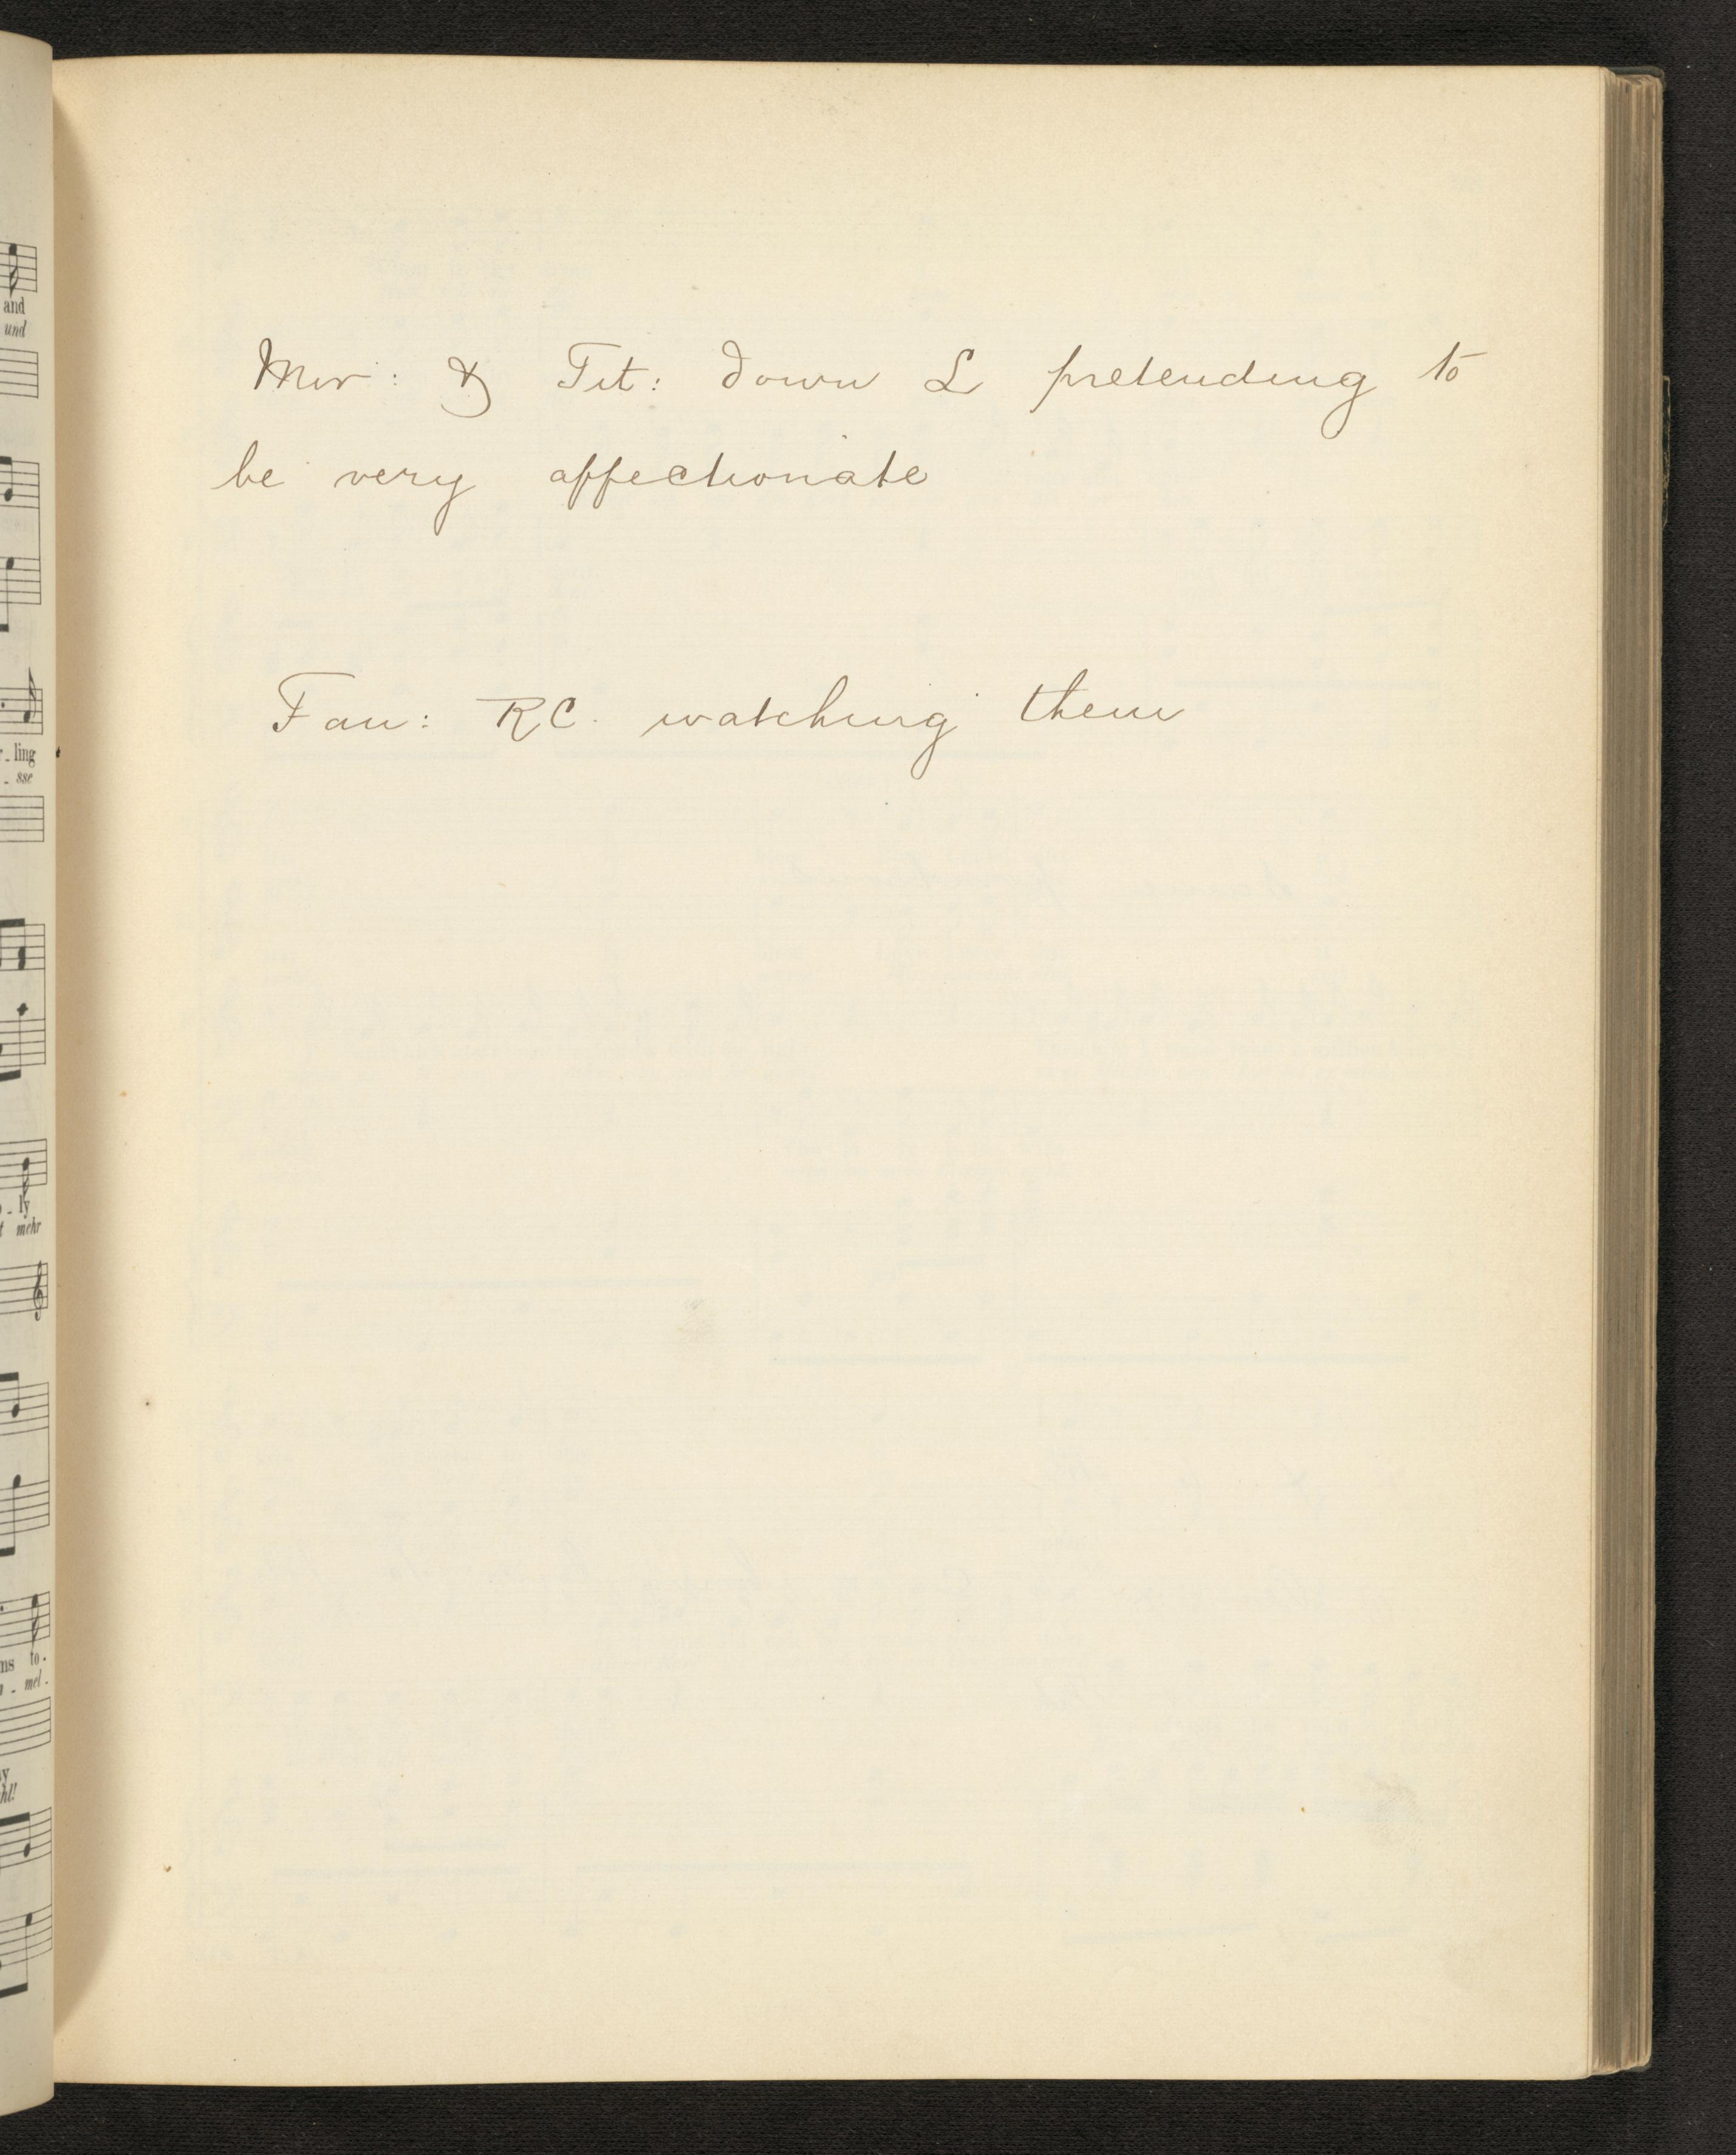 and
und
r - ling
- sse
- ly
t mehr
ms to -
- mel -
hl!
Mir: & Tit: down L pretending to
be very affectionate
Fau: RC. watching them